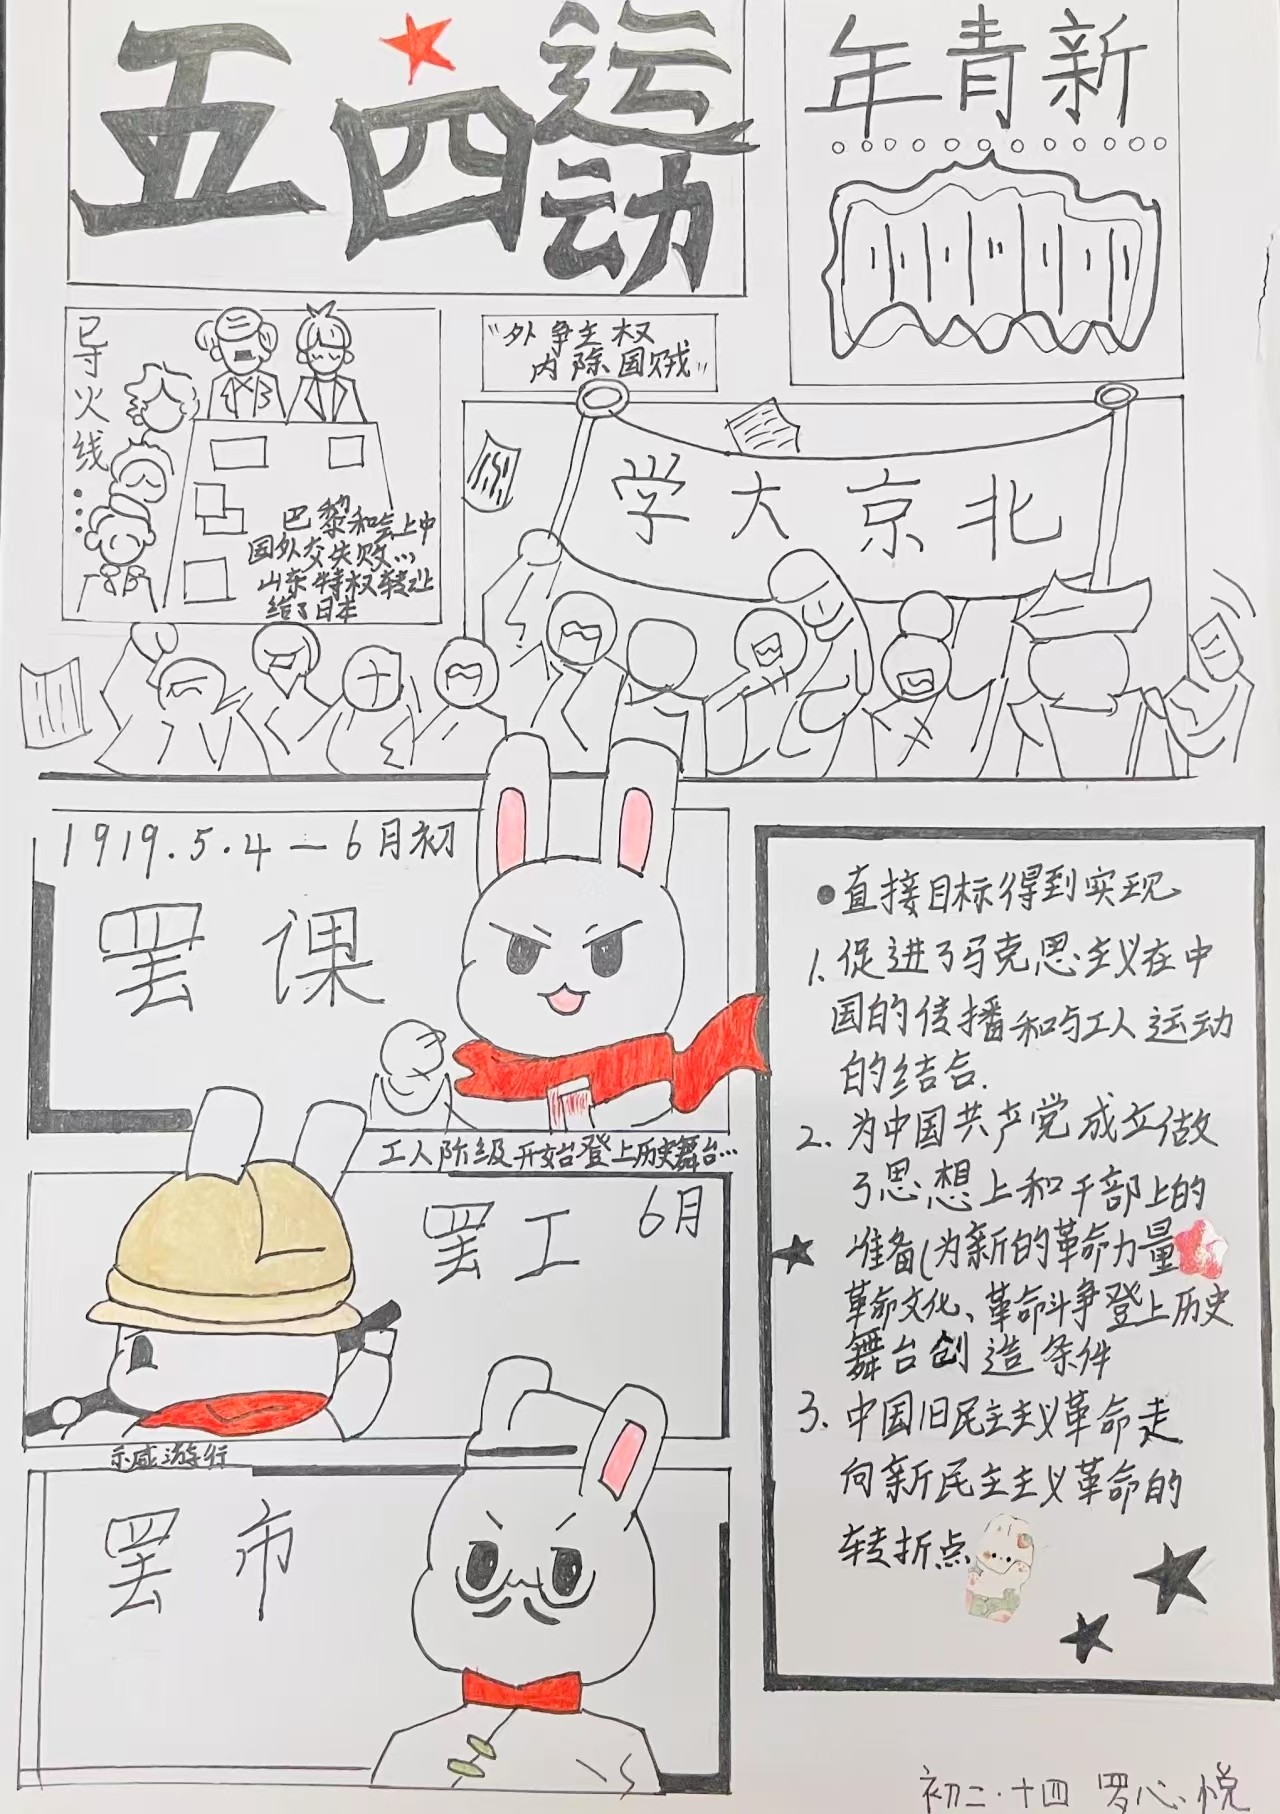 五四运动
年青新
导火线…
巴黎和会上中
国外交失败…
山东特权转让
给了日本
“外争主权
内除国贼”
学大京北
1919.5.4—6月初
罢课
工人阶级开始登上历史舞台…
罢工 6月
示威游行
罢市
●直接目标得到实现
1.促进了马克思主义在中
国的传播和与工人运动
的结合.
2.为中国共产党成立做
了思想上和干部上的
准备(为新的革命力量
革命文化、革命斗争登上历史
舞台创造条件
3.中国旧民主主义革命走
向新民主主义革命的
转折点
初二·十四 罗心悦